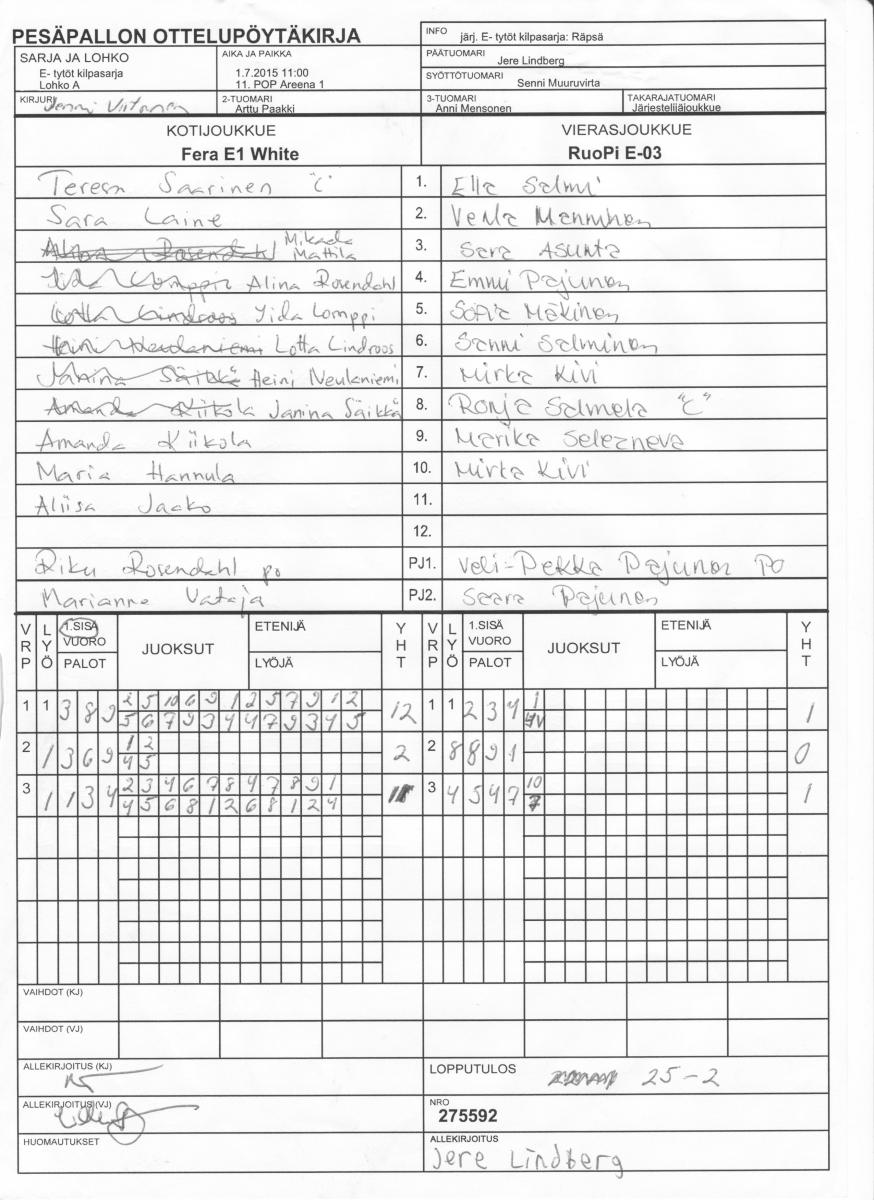 PESÄPALLON OTTELUPÖYTÄKIRJA
INFO järj. E- tytöt kilpasarja: Räpsä
SARJA JA LOHKO
E- tytöt kilpasarja
Lohko A
AIKA JA PAIKKA
1.7.2015 11:00
11. POP Areena 1
PÄÄTUOMARI
Jere Lindberg
SYÖTTÖTUOMARI
Senni Muuruvirta
KIRJURI Jenni Viitanen
2-TUOMARI
Arttu Paakki
3-TUOMARI
Anni Mensonen
TAKARAJATUOMARI
Järjestelijäjoukkue
KOTIJOUKKUE VIERASJOUKKUE
Fera E1 White RuoPi E-03
Teresa Saarinen "C" 1. Ella Salmi
Sara Laine 2. Venla Manninen
Mikada Mattila 3. Sara Asunta
Alina Rosendahl 4. Emmi Pajunen
Iida Lomppi 5. Sofia Mäkinen
Lotta Lindroos 6. Sanni Salminen
Heini Neulaniemi 7. Mirka Kivi
Janina Säikkä 8. Ronja Salmela "C"
Amanda Kiikola 9. Marika Selezneva
Maria Hannula 10. Mirka Kivi
Aliisa Jaako 11.
12.
Riku Rosendahl po PJ1. Veli-Pekka Pajunen PO
Marianne Vataja PJ2. Saara Pajunen
VRP LYÖ 1.SISÄ VUORO PALOT JUOKSUT ETENIJÄ LYÖJÄ YHT VRP LYÖ 1.SISÄ VUORO PALOT JUOKSUT ETENIJÄ LYÖJÄ YHT
1 1 3 8 9 2 5 10 6 9 1 2 5 7 9 1 2 12 1 1 2 3 4 1 1
5 6 7 9 3 4 4 7 9 3 4 5 4V
2 1 3 6 9 1 2 2 2 8 8 9 1 0
4 5
3 1 1 3 4 2 3 4 6 7 8 4 7 8 9 1 11 3 4 5 4 7 10 1
4 5 6 8 1 2 6 8 1 2 4 7
VAIHDOT (KJ)
VAIHDOT (VJ)
ALLEKIRJOITUS (KJ)
LOPPUTULOS 25-2
ALLEKIRJOITUS (VJ)
NRO
275592
HUOMAUTUKSET
ALLEKIRJOITUS
Jere Lindberg